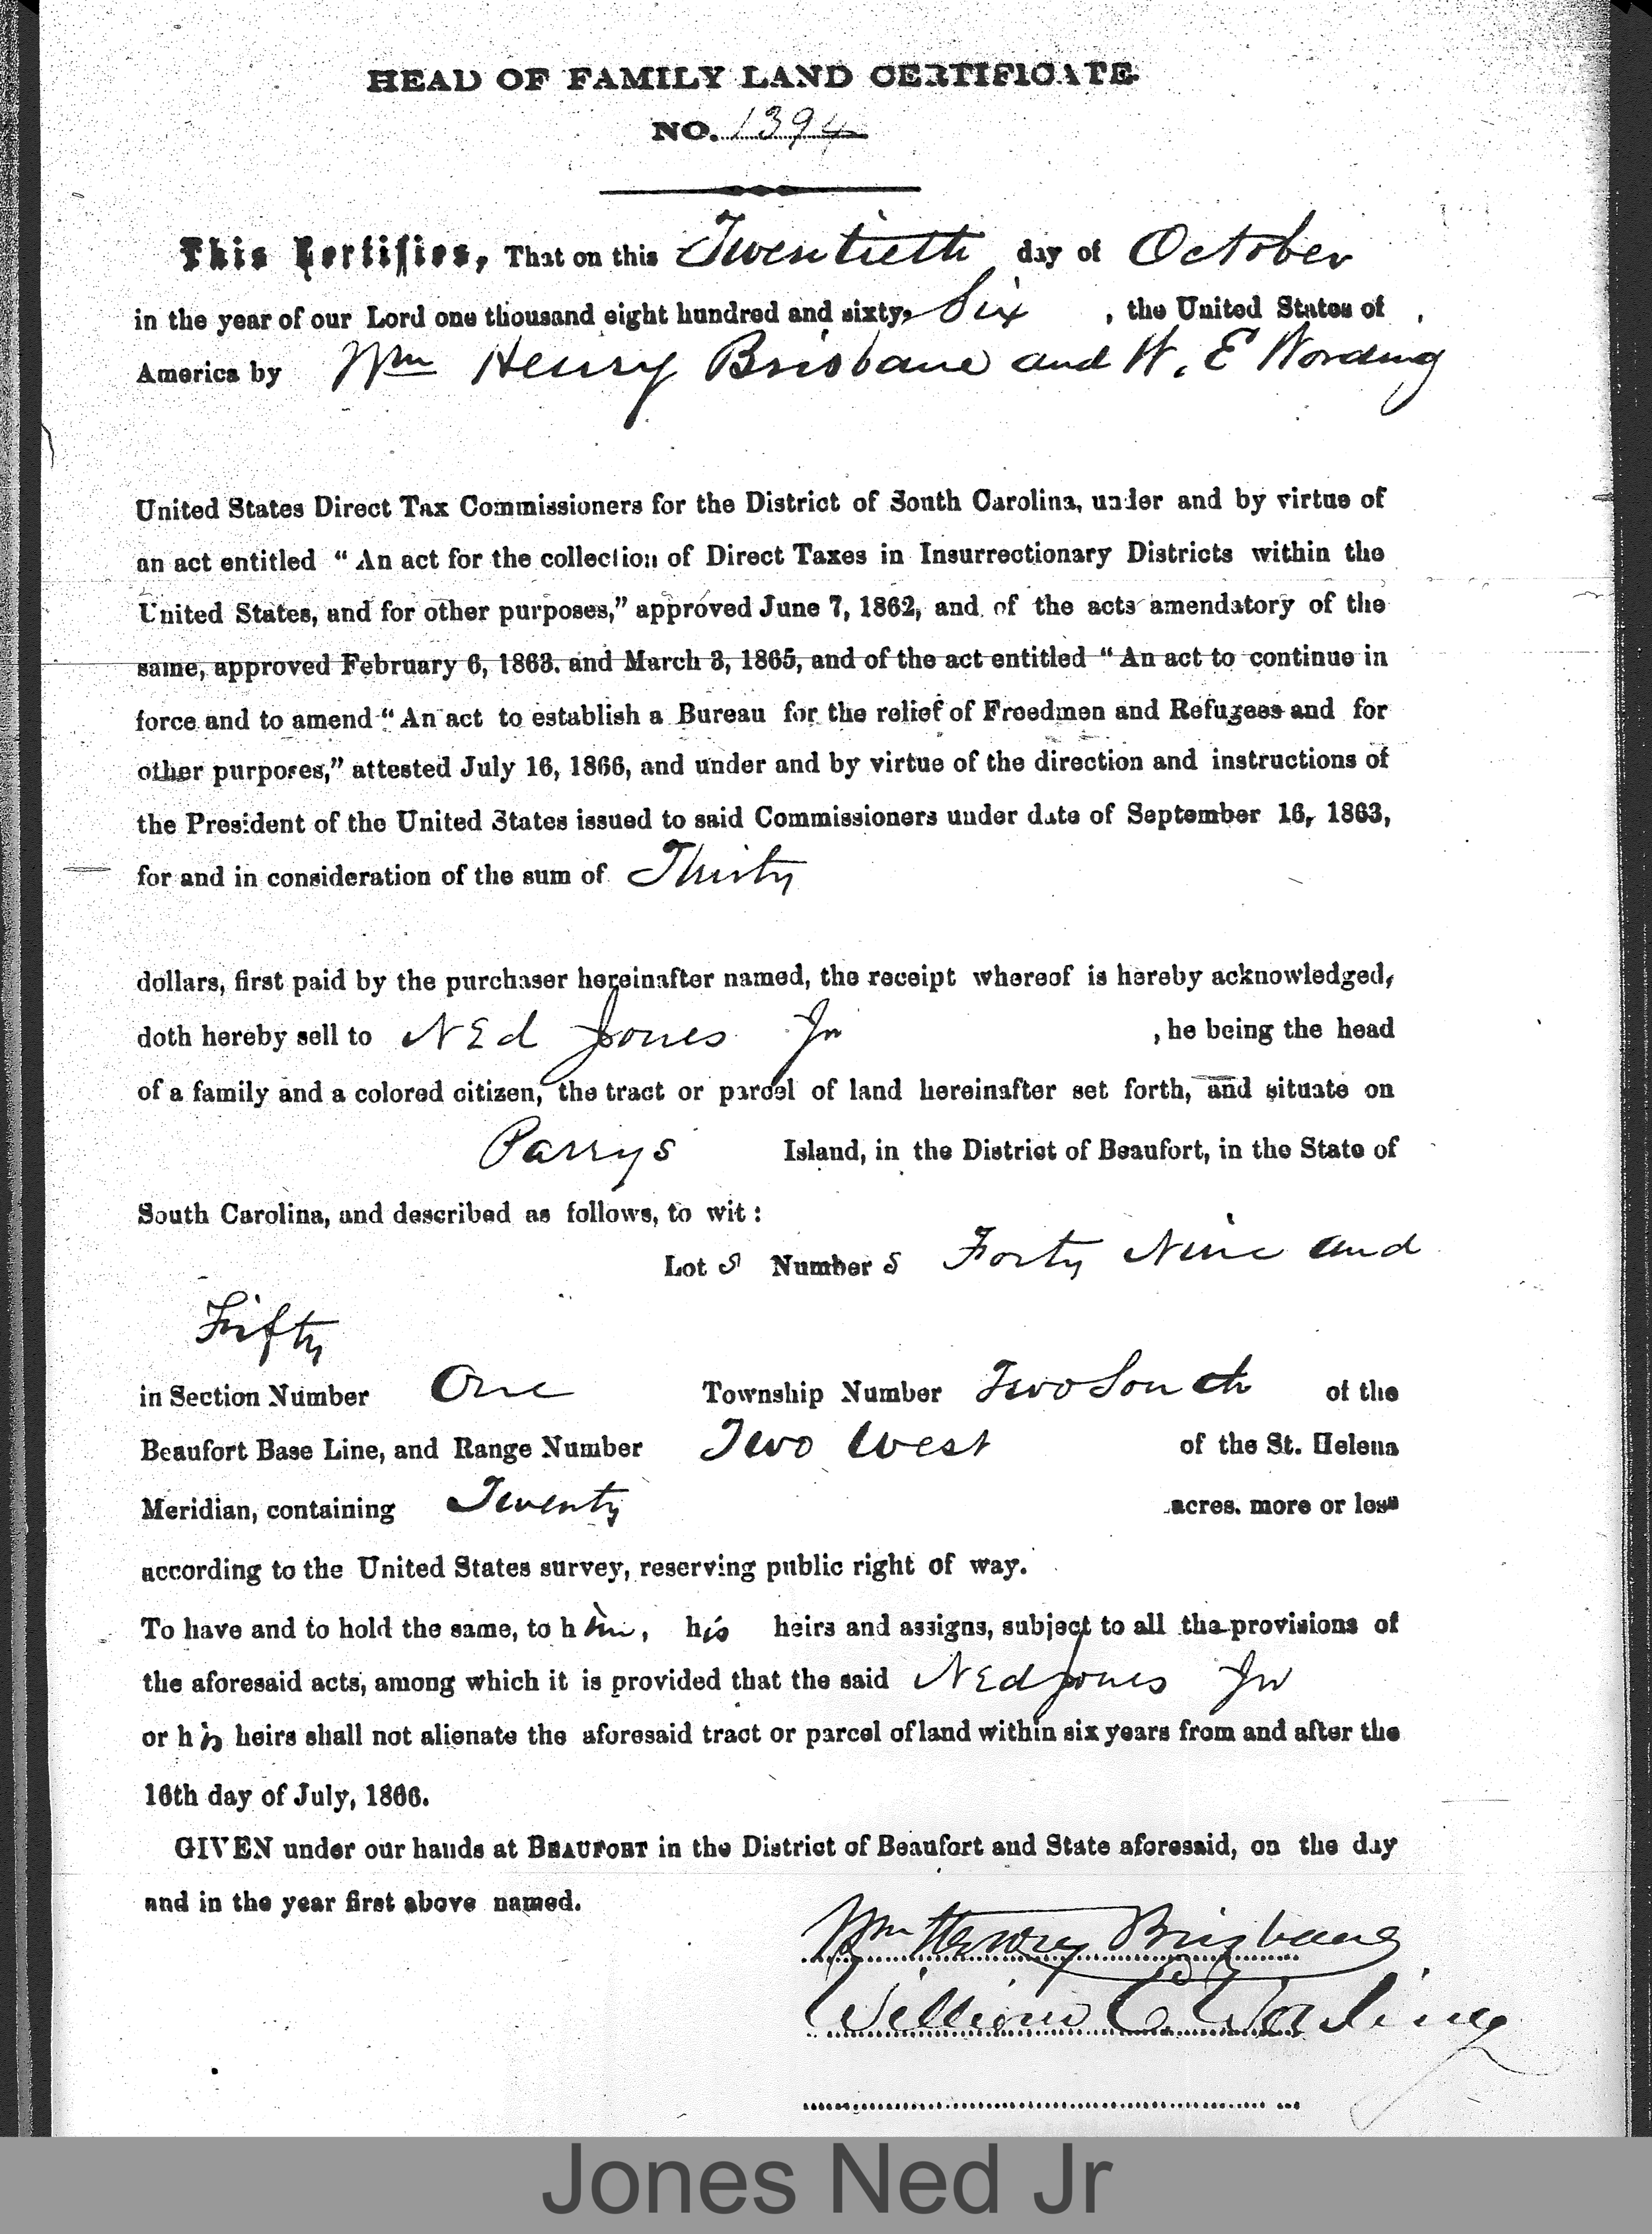 HEAD OF FAMILY LAND CERTIFICATE.
NO. 1394
This Certifies, That on this Twentieth day of October
in the year of our Lord one thousand eight hundred and sixty- Six , the United States of
America by Wm Henry Brisbane and W. E Wording
United States Direct Tax Commissioners for the District of South Carolina, under and by virtue of
an act entitled “ An act for the collection of Direct Taxes in Insurrectionary Districts within the
United States, and for other purposes,” approved June 7, 1862, and of the acts amendatory of the
same, approved February 6, 1863. and March 3, 1865, and of the act entitled “ An act to continue in
force and to amend “ An act to establish a Bureau for the relief of Freedmen and Refugees and for
other purposes,” attested July 16, 1866, and under and by virtue of the direction and instructions of
the President of the United States issued to said Commissioners under date of September 16, 1863,
for and in consideration of the sum of Thirty
dollars, first paid by the purchaser hereinafter named, the receipt whereof is hereby acknowledged,
doth hereby sell to NEd Jones Jr , he being the head
of a family and a colored citizen, the tract or parcel of land hereinafter set forth, and situate on
Parrys Island, in the District of Beaufort, in the State of
South Carolina, and described as follows, to wit :
Lot s Number s Forty Nine and
Fifty
in Section Number One Township Number Two South of the
Beaufort Base Line, and Range Number Two West of the St. Helena
Meridian, containing Twenty acres. more or less
according to the United States survey, reserving public right of way.
To have and to hold the same, to him, his heirs and assigns, subject to all the provisions of
the aforesaid acts, among which it is provided that the said NEd Jones Jr
or his heirs shall not alienate the aforesaid tract or parcel of land within six years from and after the
16th day of July, 1866.
GIVEN under our hands at BEAUFORT in the District of Beaufort and State aforesaid, on the day
and in the year first above named.
Wm Henry Brisbane
William E. Wording
Jones Ned Jr